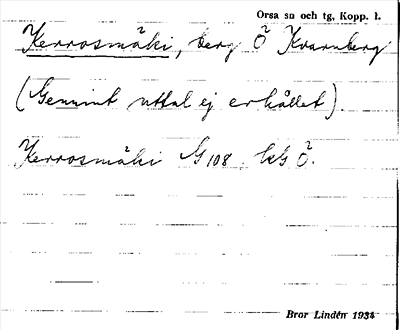 Orsa sn och tg, Kopp. l.
Kerrosmäki, berg Ö Kvarnberg
(Genuint uttal ej erhållet).
Kerrosmäki G 108 kbl Ö.
Bror Lindén 1934